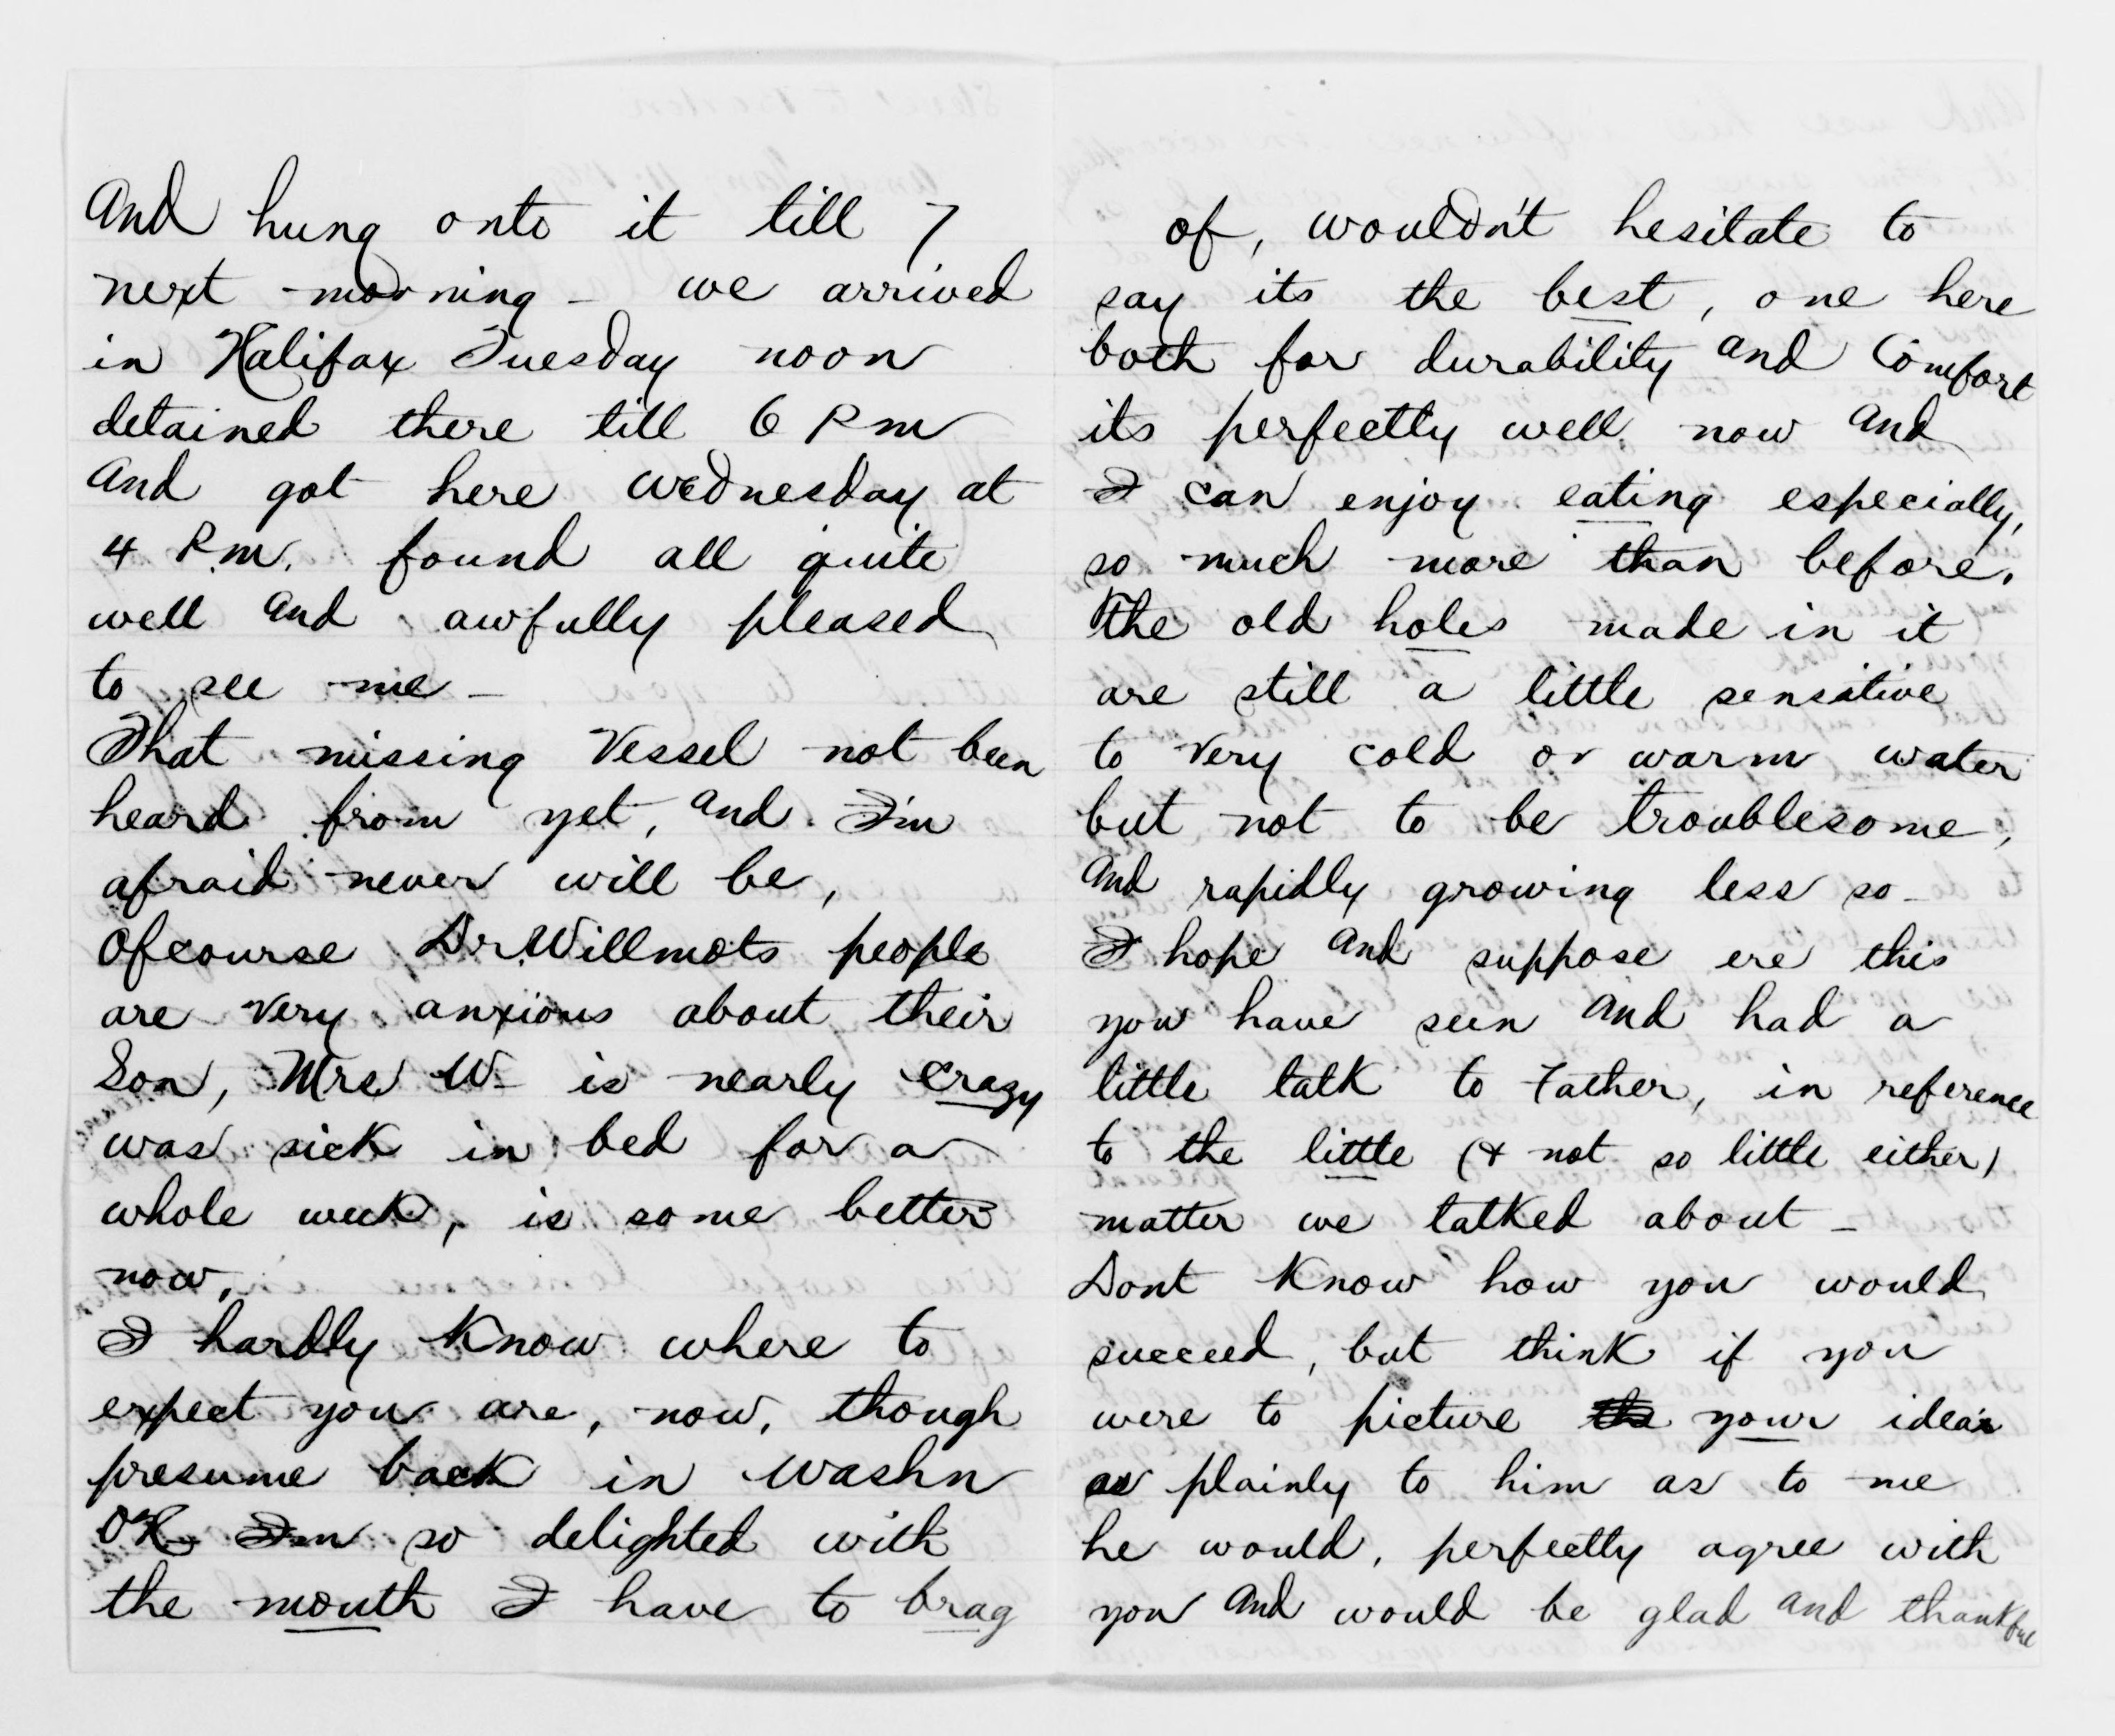 And hung onto it till 7
next morning - we arrived
in Halifax Tuesday noon
detained there till 6 P m
And got here Wednesday at
4 P.m. found all quite
well and awfully pleased
to see me -
That missing Vessel not been
heard from yet, and I'm
afraid never will be,
Ofcourse Dr. Willmots people
are very anxious about their
Son, Mrs W- is nearly crazy
was sick in bed for a
whole week, is some better
now.
I hardly know where to
expect you are, now, though
presume back in Washn
OK Im so delighted with
the mouth I have to brag
of, wouldn't hesitate to
say its the best, one here
both for durability and Comfort
its perfectly well now and
I can enjoy eating especially,
so much more than before.
The old holes made in it
are still a little sensative
to very cold or warm water
but not to be troublesome,
And rapidly growing less so -
I hope and suppose ere this
you have seen and had a
little talk to Father, in reference
to the little (& not so little either)
matter we talked about -
Dont Know how you would
succeed, but think if you
were to picture the your idea's
as plainly to him as to me
he would, perfectly agree with
you and would be glad and thankful